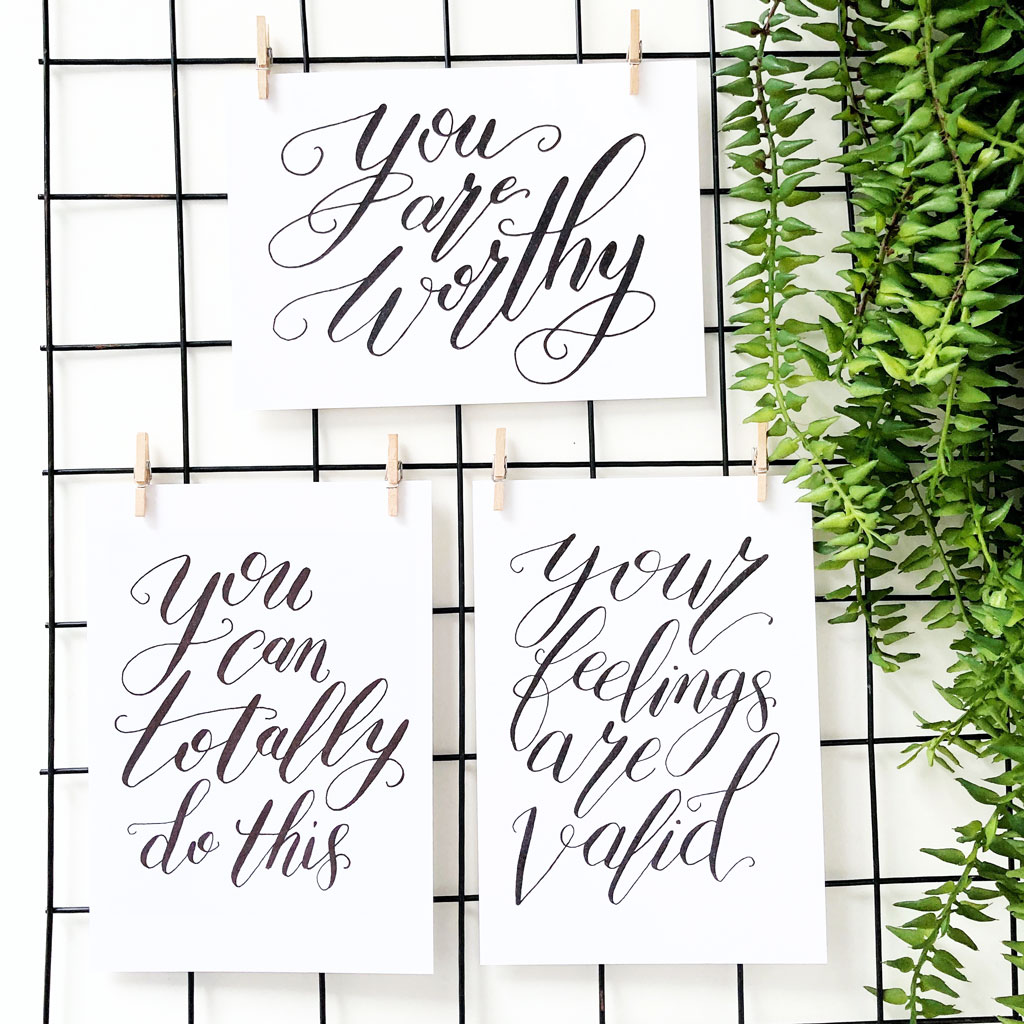 you
are
worthy
you
can
totally
do this
your
feelings
are
valid